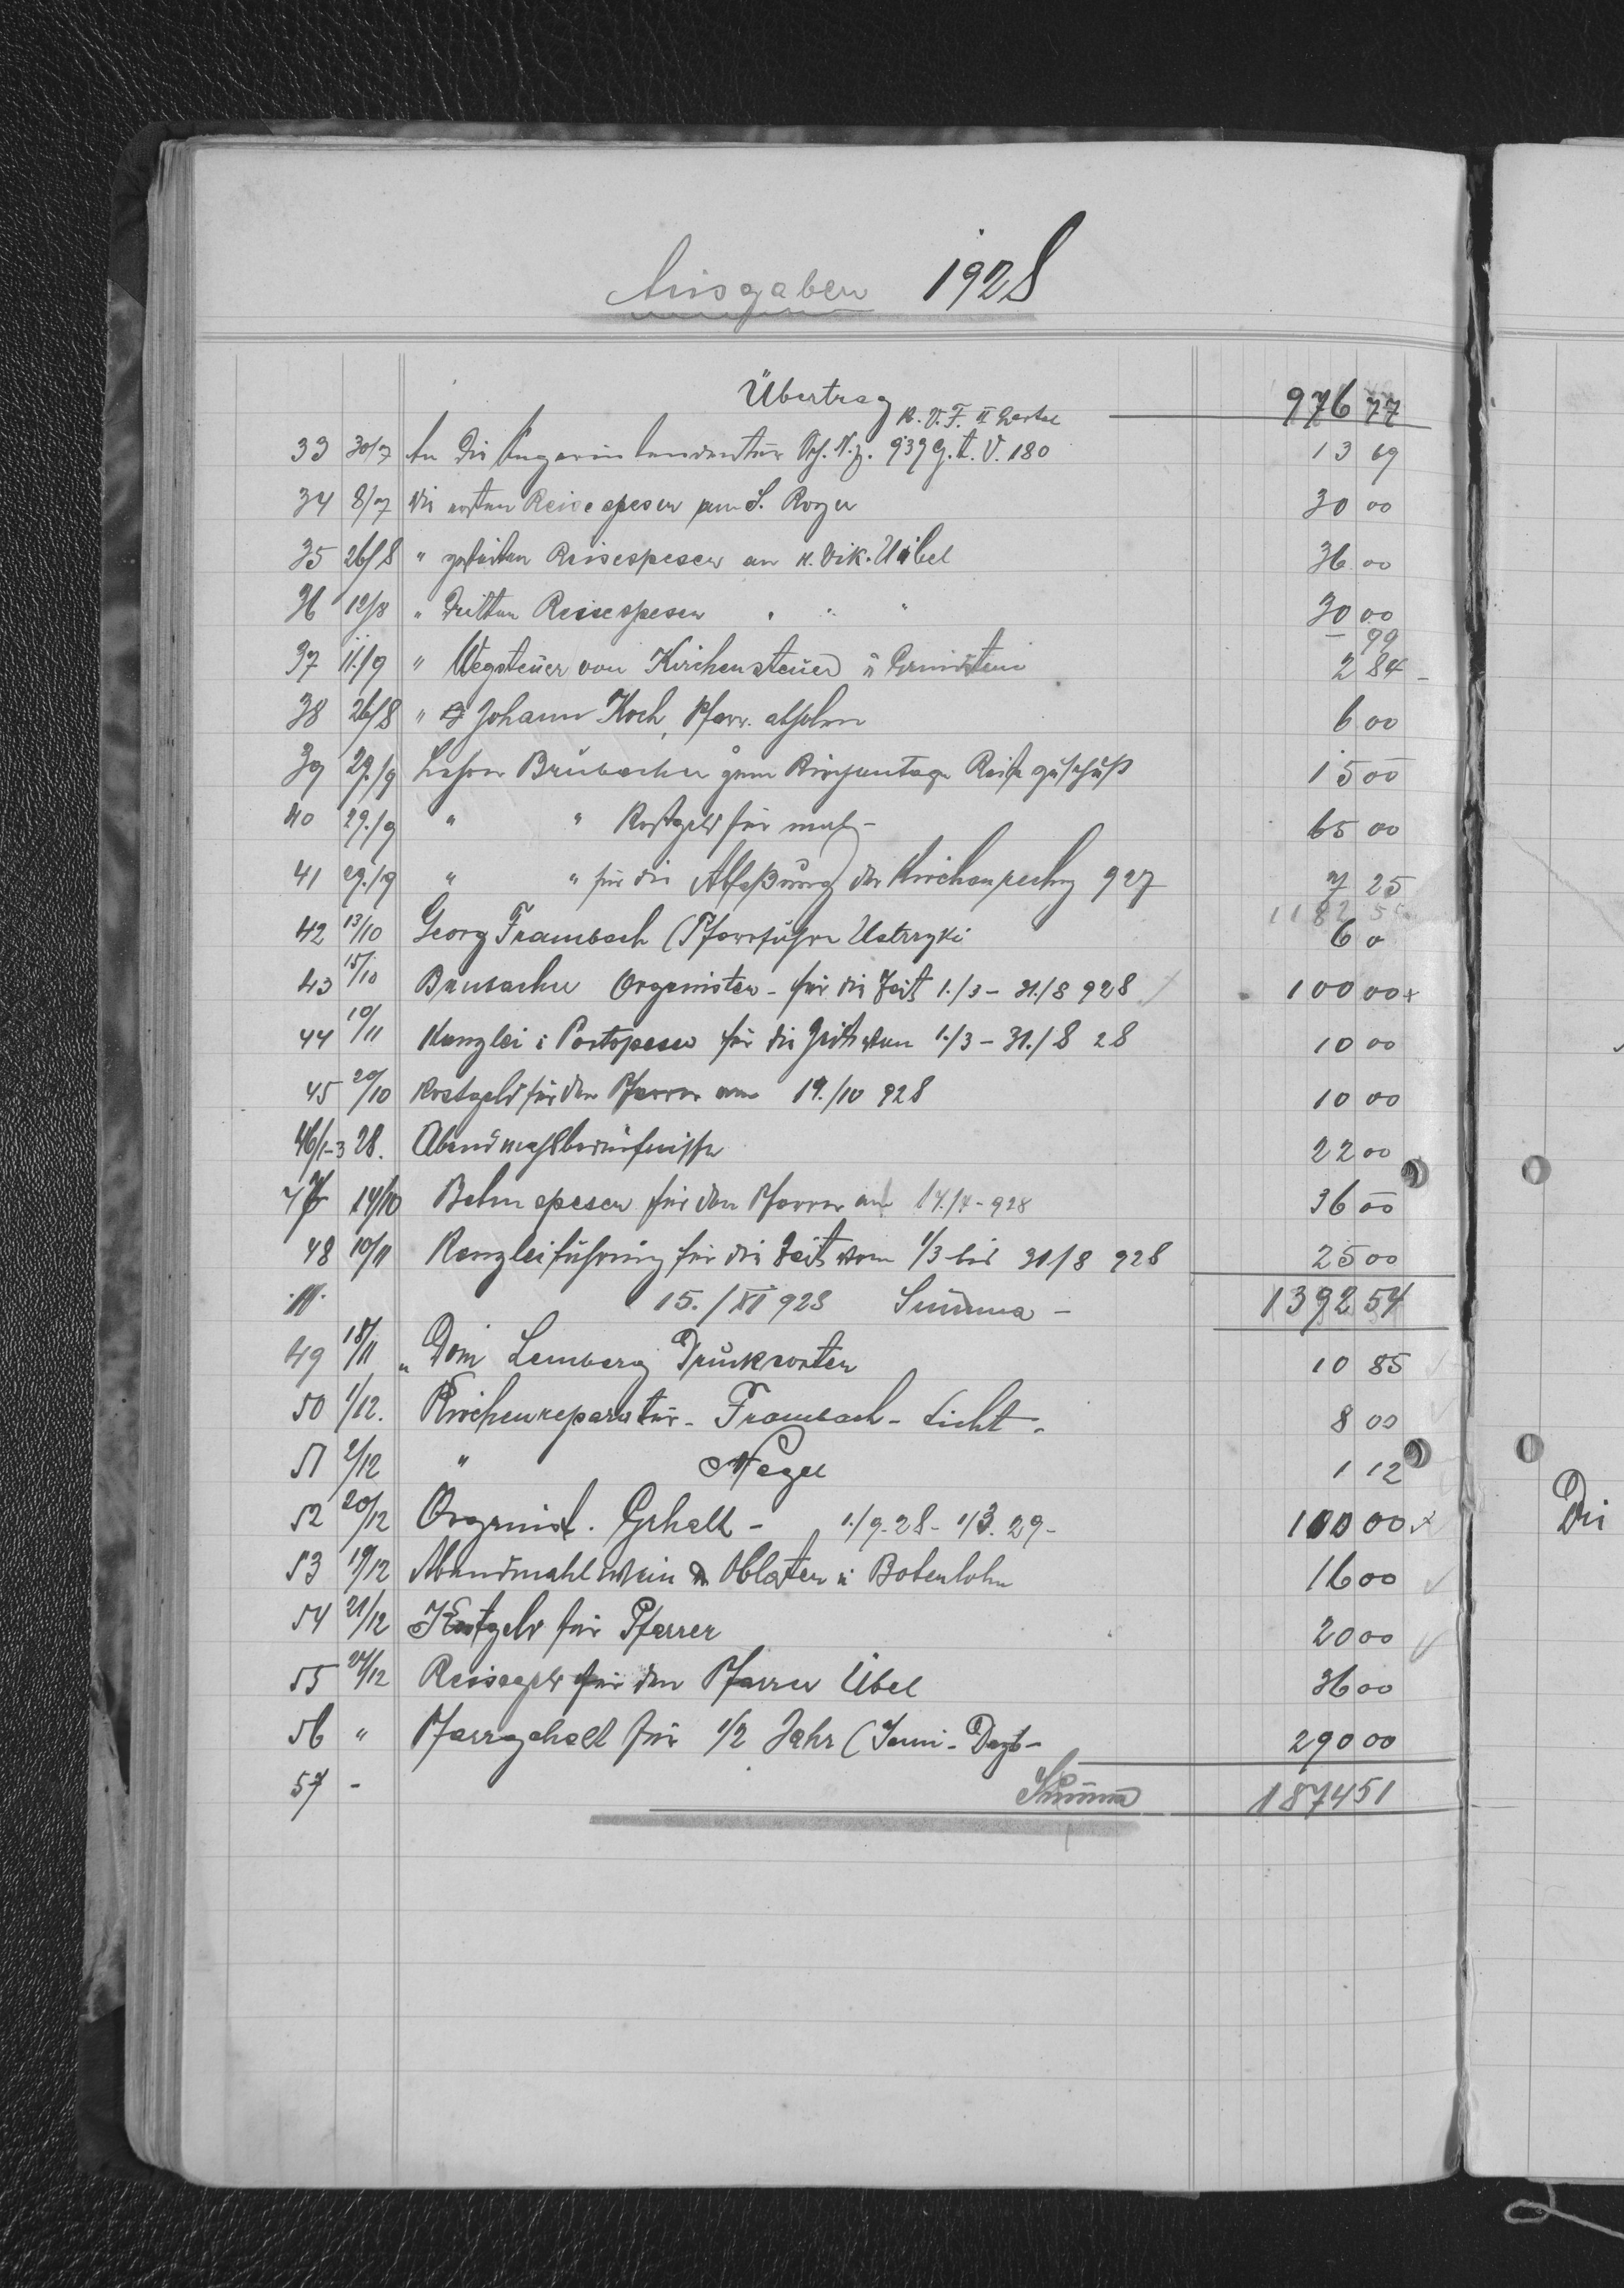 Ausgaben 1928
Übertrag 976 77
R. V. F. II
33 30/7 An die 939 G. t. V. 180 13 69
34 8/7 die ersten Reisespesen S. Royer 30 00
35 26/8 " zweiten Reisespesen an H. Vik. Uibel 36 00
36 12/8 " dritten Reisespesen " " " 30 00
– 99
37 11./9 " Wegsteuer von Kirchensteuer ü 2 84
38 26/8 " Johann Koch, Pfarr. abholen 6 00
39 29./9 Lehrer Brubacher zum Kirchentage Reisezuschuß 15 00
40 29./9 " " Kostgeld für 65 00
41 29./9 " " für die Abfaßung der Kirchenrechng 927 7 25
1182 5
42 13/10 Georg Frambach (Pfarrfuhre Ustrzyki 6 0
43 15/10 Brubacher Organisten - für die Zeit 1./3 - 31./8 928 100 00 +
44 10/11 Kanzlei & Portospesen für die Zeit vom 1./3 - 31./8 28 10 00
45 20/10 Kostgeld für den Pfarrer am 19./10 928 10 00
46/1-3 28. Abendmahlbedürfnisse 22 00
47 14/10 Bahnspesen für den Pfarrer am 928 36 00
48 10/11 Kanzleiführung für die Zeit vom 1/3 bis 31/8 928 25 00
15./XI 928 Summa - 1392 54
49 18/11 " Dom Lemberg Drucksorten 10 85
50 1/12. Kirchenreparatur - Frambach - Licht - 8 00
51 2/12 " Nägel 1 12
52 20/12 Organist. Gehalt - 1./9. 28 - 1/3. 29 - 100 00 +
53 19/12 Abendmahlwein Oblaten ü Botenlohn 16 00
54 21/12 Kostgeld für Pfarrer 20 00
55 24/12 Reisegeld für den Pfarrer Übel 36 00
56 " Pfarrgehalt für 1/2 Jahr (Juni - Dezb - 290 00
57 - Summa 1874 51
Di